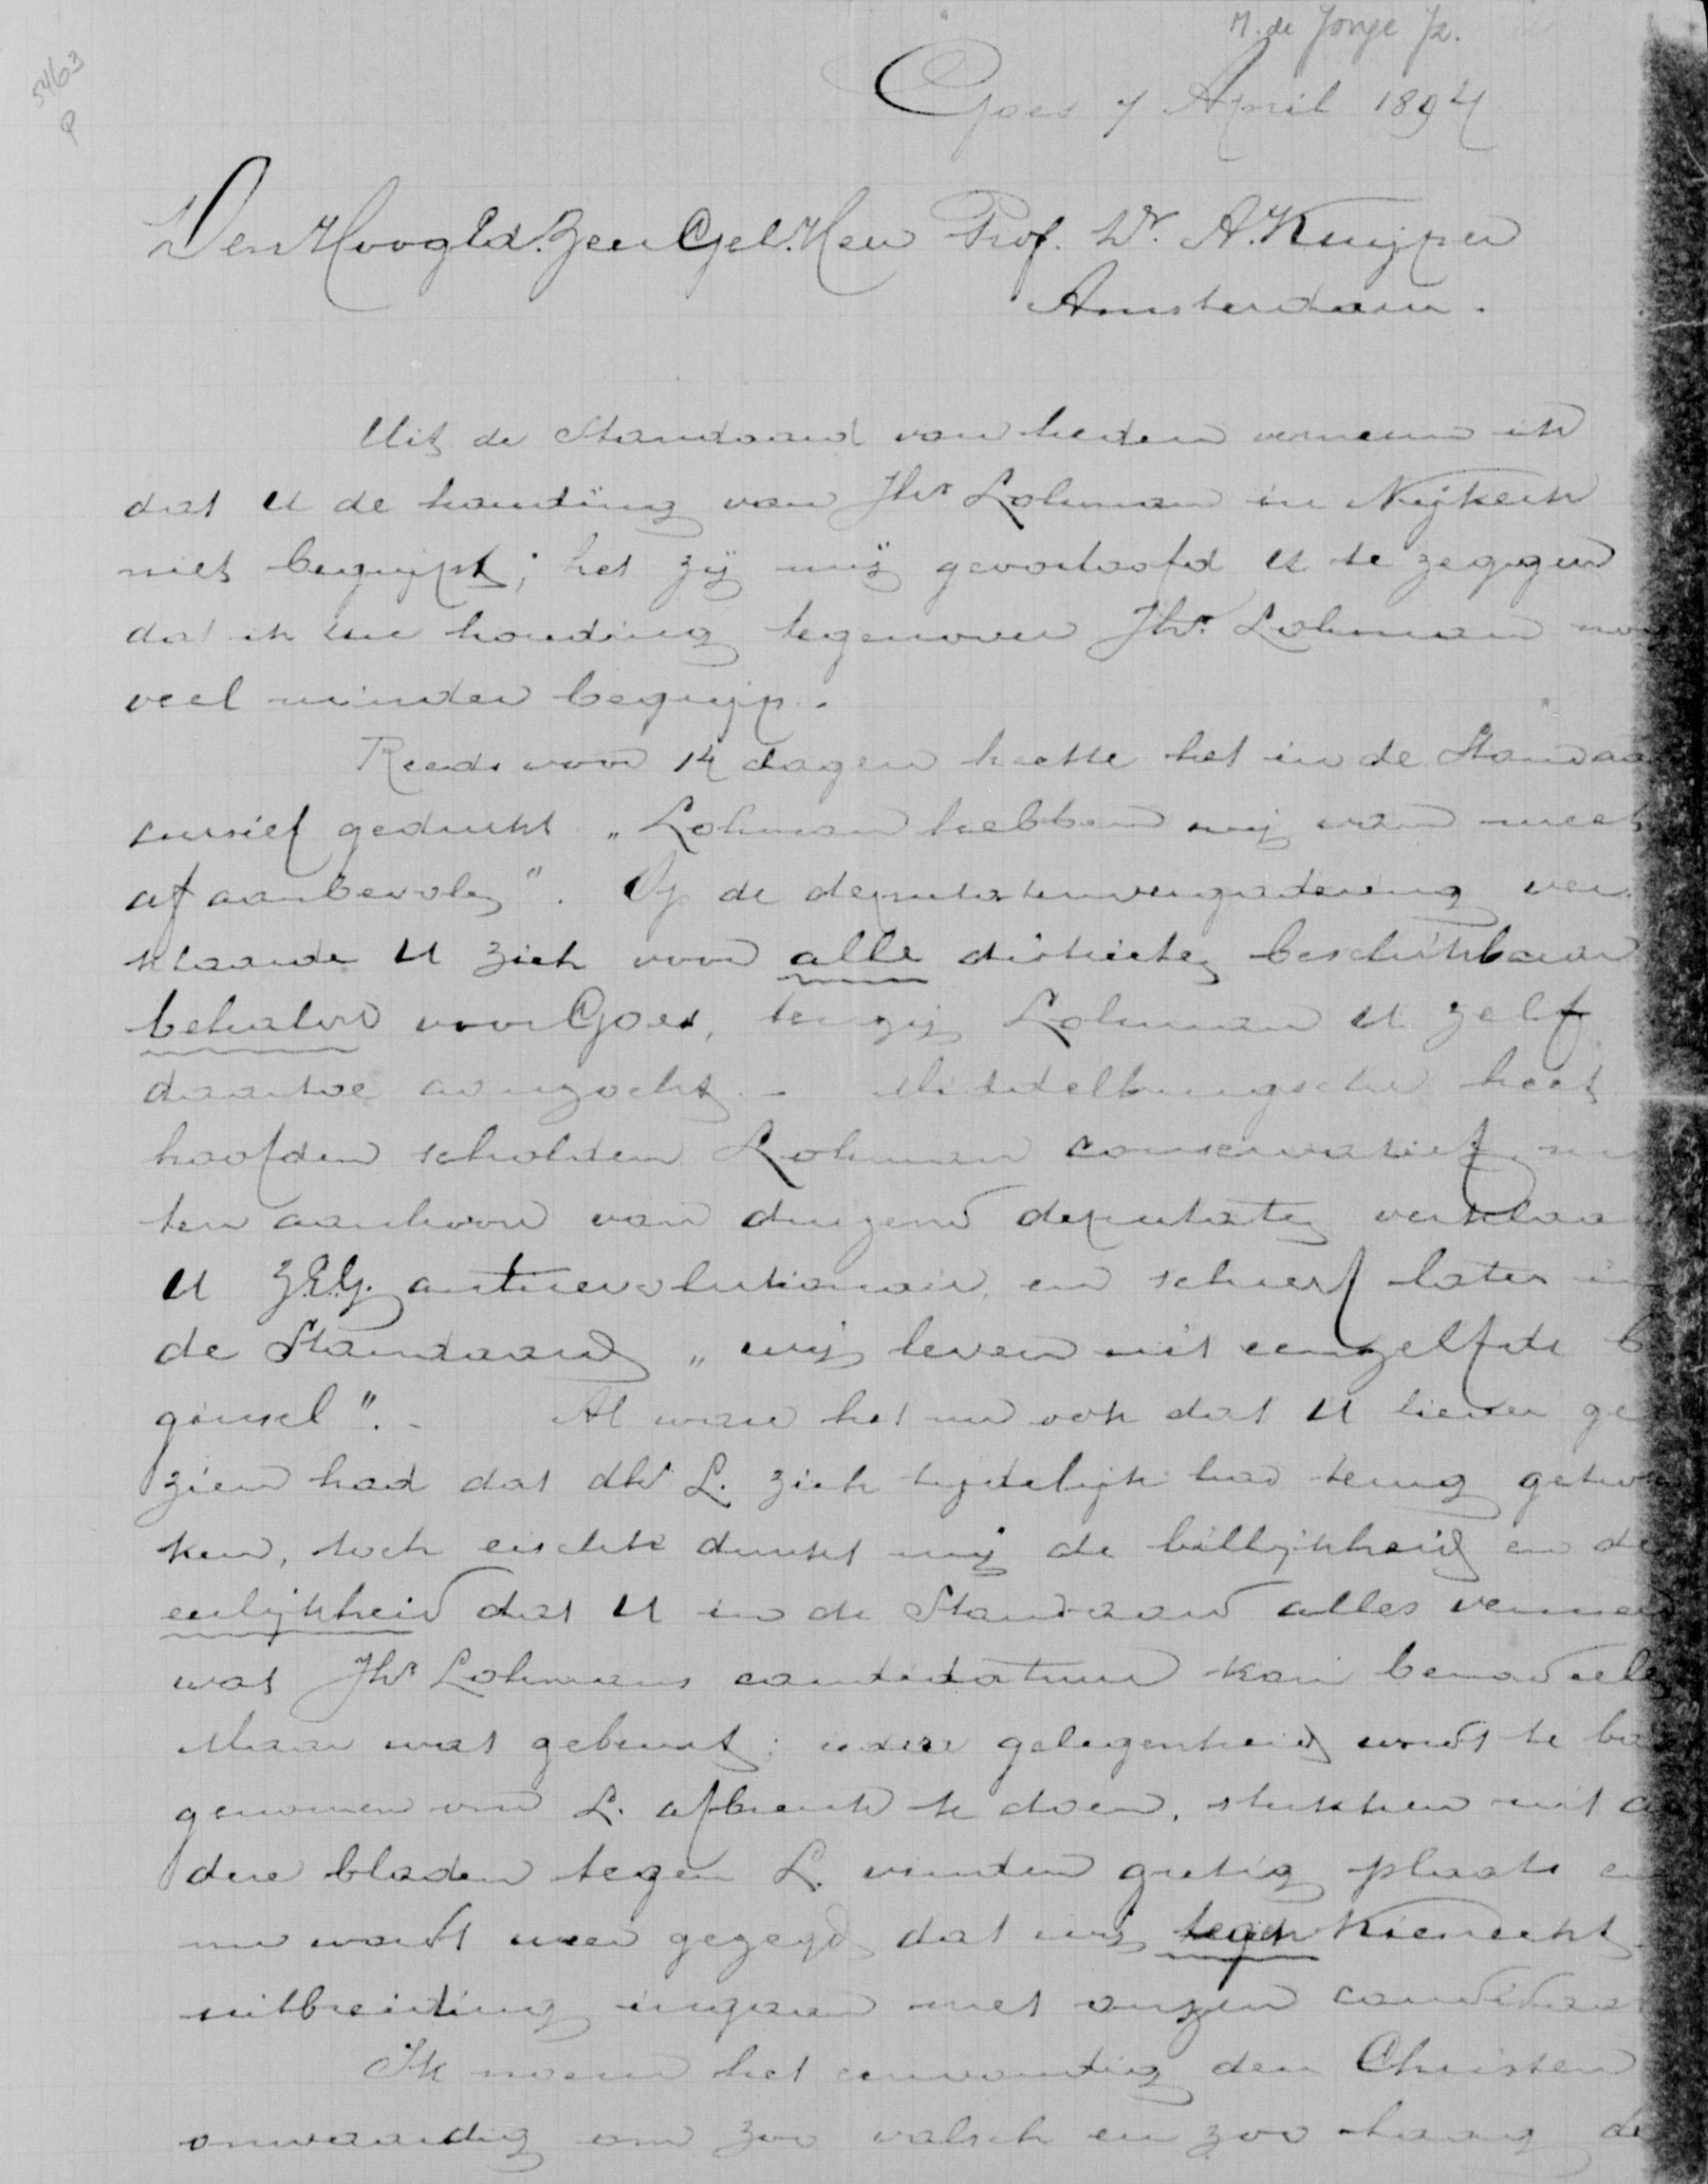 M. de Jonge Jz.
5463
P
Goes 7 April 1894
Den Hoogld. Zeer Gel. Heer Prof. Dr. A. Kuyper
Amsterdam.
Uit de Standaard van heden verneem ik
dat U de houding van Jhr Lohman in Nijkerk
niet begrijpt; het zij mij geoorloofd U te zeggen
dat ik uw houding tegenover Jhr. Lohman
veel minder begrijp.
Reeds voor 14 dagen heette het in de Standaa
cursief gedrukt „Lohman hebben wij van meet
af aanbevolen". Op de deputatenvergadering ver
klaarde U zich voor alle districten beschikbaar
behalve voor Goes, tenzij Lohman U zelf
daartoe aanzocht. - Middelburgsche heet
hoofden scholden Lohman conservatief,
ten aanhoore van duizend deputaten verklaar
U Z.E.G. antirevolutionair, en schreef later in
de Standaard „wij leven uit eenzelfde b
ginsel". - Al ware het nu ook dat U liever ge
zien had dat dhr L. zich tijdelijk had terug getrok
ken, toch eischte dunkt mij de billijkheid en de
eerlijkheid dat U in de Standaard alles vermeed
wat Jhr Lohmans candidatuur kon benadeelen
Maar wat gebeurt; iedere gelegenheid wordt te baat
genomen om L. afbreuk te doen, stukken uit
dere bladen tegen L. vinden gretig plaats en
nu wordt weer gezegd dat wij tegen Kiesrecht
uitbreiding ingaan met onzen candidaat
Ik noem het eenvoudig den Christen
onwaardig om zoo valsch en zoo laag de